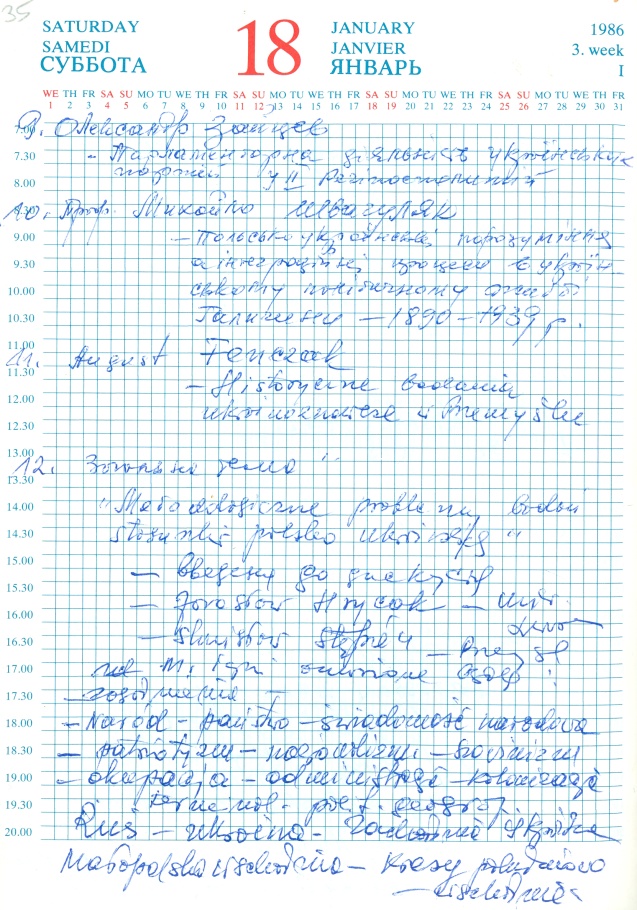 35
SATURDAY
SAMEDI
СУББОТА
18
JANUARY
JANVIER
ЯНВАРЬ
1986
3. week
I
WE TH FR SA SU MO TU WE TH FR SA SU MO TU WE TH FR SA SU MO TU WE TH FR SA SU MO TU WE TH FR
1 2 3 4 5 6 7 8 9 10 11 12 13 14 15 16 17 18 19 20 21 22 23 24 25 26 27 28 29 30 31
7.00 9. Олександр Зайцев
7.30 - Парламентарна діяльність українських
8.00 партій у ІІ Речіпосполитій
8.30 10. Проф. Микола Швагуляк
9.00 - Польсько українські порозуміння
9.30 а інтеграційні процеси в україн
10.00 ському політичному
10.30 Галичини - 1890 - 1939 р.
11.00 11. August Fenczak
11.30 - Historyczne badania
12.00 ukrainoznawcze w Przemyślu
12.30
13.00 12. Загальна тема "
13.30
14.00 "Metodologiczne problemy badań
14.30 stosunków polsko ukraińskich"
15.00 - Введення до дискусії
15.30 - Jarosław Hrycak -
16.00 Lwów
16.30 - Stanisław Stępień - Przemyśl
17.00 M. inn. omówione będą
17.30 zagadnienia
18.00 - Naród - państwo - świadomość narodowa
18.30 - patriotyzm - nacjonalizm - szowinizm
19.00 - okupacja - administracja - kolonizacja
19.30 terminol. - polit. geograf.
20.00 Ruś - Ukraina - Zachodnia Ukraina
Małopolska wschodnia - Kresy południowo
- wschodnie